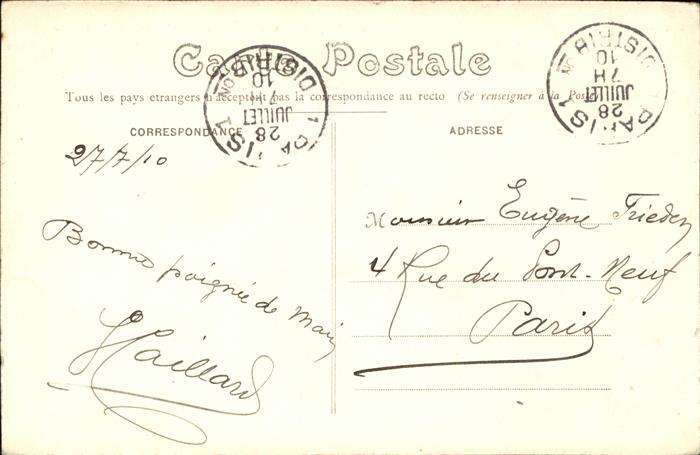 Carte Postale
Tous les pays étrangers n'acceptent pas la correspondance au recto (Se renseigner à la Poste)
CORRESPONDANCE
27/7/10
Bonne poignée de main
Maillard
ADRESSE
Monsieur Eugène Frieden
4 Rue du Pont-Neuf
Paris
PARIS 1 DISTRIB
28
JUILLET
7H
10
PARIS 1 DISTRIB
28
JUILLET
7H
10